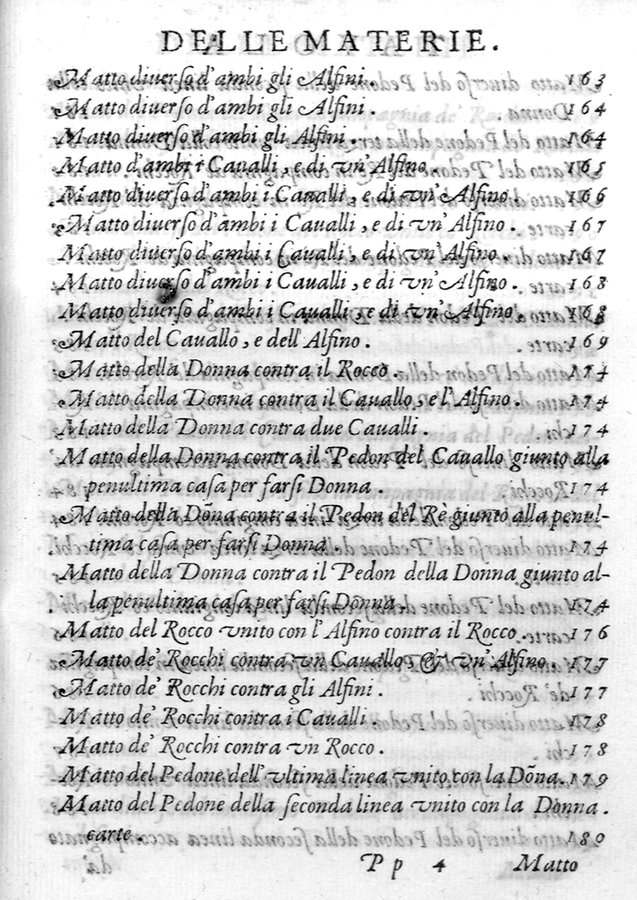 DELLE MATERIE.
Matto diuerſo d'ambi gli Alfini. 163
Matto diuerſo d'ambi gli Alfini. 164
Matto diuerſo d'ambi gli Alfini. 164
Matto d'ambi i Caualli, e di vn'Alfino. 165
Matto diuerſo d'ambi i Caualli, e di vn'Alfino. 166
Matto diuerſo d'ambi i Caualli, e di vn'Alfino. 167
Matto diuerſo d'ambi i Caualli, e di vn'Alfino. 167
Matto diuerſo d'ambi i Caualli, e di vn'Alfino. 168
Matto diuerſo d'ambi i Caualli, e di vn'Alfino. 168
Matto del Cauallo, e dell'Alfino. 169
Matto della Donna contra il Rocco. 174
Matto della Donna contra il Cauallo, e l'Alfino. 174
Matto della Donna contra due Caualli. 174
Matto della Donna contra il Pedon del Cauallo giunto alla
penultima caſa per farſi Donna. 174
Matto della Dōna contra il Pedon del Rè giunto alla penul-
tima caſa per farſi Donna. 174
Matto della Donna contra il Pedon della Donna giunto al-
la penultima caſa per farſi Donna. 174
Matto del Rocco vnito con l'Alfino contra il Rocco. 176
Matto de' Rocchi contra vn Cauallo, & vn'Alfino. 177
Matto de' Rocchi contra gli Alfini. 177
Matto de' Rocchi contra i Caualli. 178
Matto de' Rocchi contra vn Rocco. 178
Matto del Pedone dell'vltima linea vnito con la Dōna. 179
Matto del Pedone della ſeconda linea vnito con la Donna.
carte. 180
Pp 4 Matto